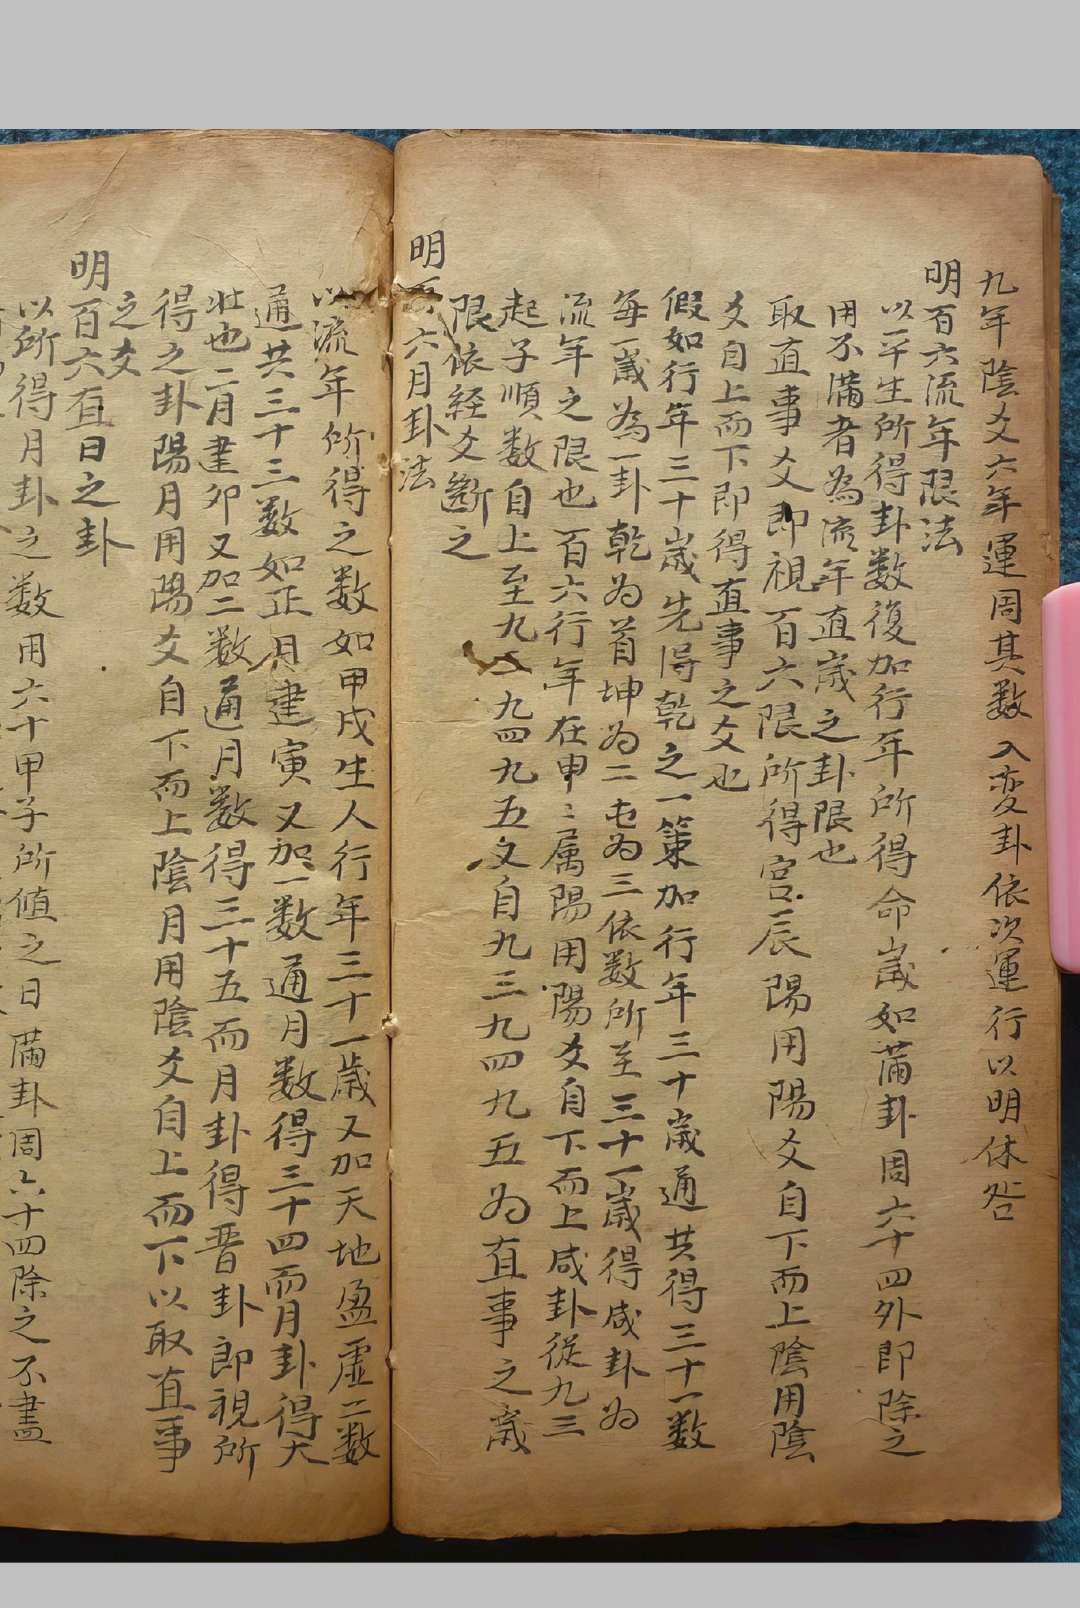 九年陰爻六年運周其数入変卦依次運行以明休咎
明百六流年限法
以平生所得卦数復加行年所得命歲如滿卦周六十四外即除之
用不滿者為流年直歲之卦限也
取直事爻即視百六限所得宫辰陽用陽爻自下而上陰用陰
爻自上而下即得直事之爻也
假如行年三十歲先得乾之一策加行年三十歲通共得三十一数
每一歲為一卦乾为首坤为二屯为三依数所至三十一歲得咸卦为
流年之限也百六行年在申〻属陽用陽爻自下而上咸卦從九三
起子順数自上至九五九四九五文自九三九四九五为直事之歲
限依経爻斷之
明百六月卦法
以流年所得之数如甲戌生人行年三十一歲又加天地盈虚二数
通共三十三数如正月建寅又加一数通月数得三十四而月卦得大
壮也二月建卯又加二数通月数得三十五而月卦得晋卦即視所
得之卦陽月用陽爻自下而上陰月用陰爻自上而下以取直事
之爻
明百六直日之卦
以所得月卦之数用六十甲子所值之日滿卦周六十四除之不盡